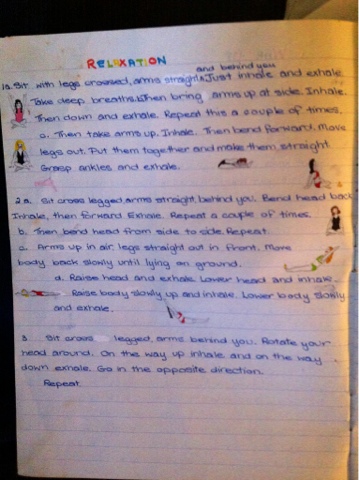 RELAXATION
and behind you
1a. Sit with legs crossed, arms straight. Just inhale and exhale.
Take deep breaths. b. Then bring arms up at side. Inhale.
Then down and exhale. Repeat this a couple of times.
c. Then take arms up. Inhale. Then bend forward. Move
legs out. Put them together and make them straight.
Grasp ankles and exhale.
2.a. Sit cross legged, arms straight, behind you. Bend head back
Inhale, then forward Exhale. Repeat a couple of times.
b. Then bend head from side to side. Repeat.
c. Arms up in air, legs straight out in front. Move
body back slowly until lying on ground.
d. Raise head and exhale. Lower head and inhale.
Raise body slowly up and inhale. Lower body slowly
and exhale.
3. Sit cross legged, arms behind you. Rotate your
head around. On the way up inhale and on the way
down exhale. Go in the opposite direction.
Repeat.